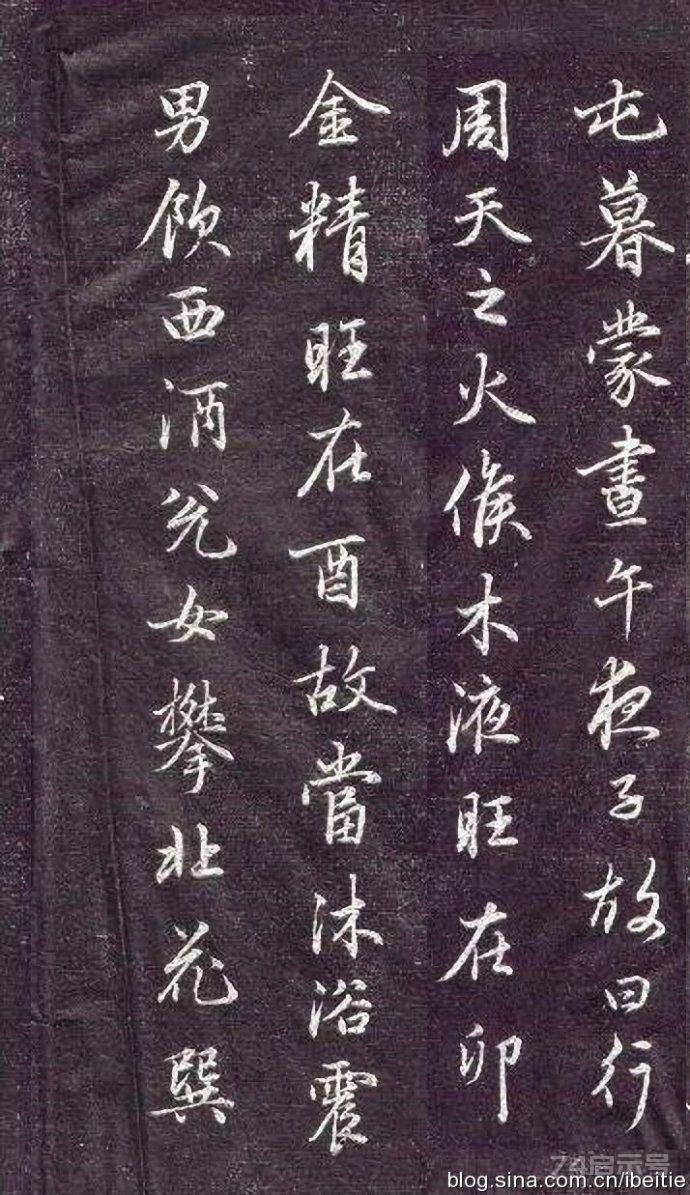 屯暮蒙晝午夜子故曰行
周天之火候木液旺在卯
金精旺在酉故當沐浴震
男飲西酒兌女攀北花巽
74启示号
blog.sina.com.cn/ibeitie